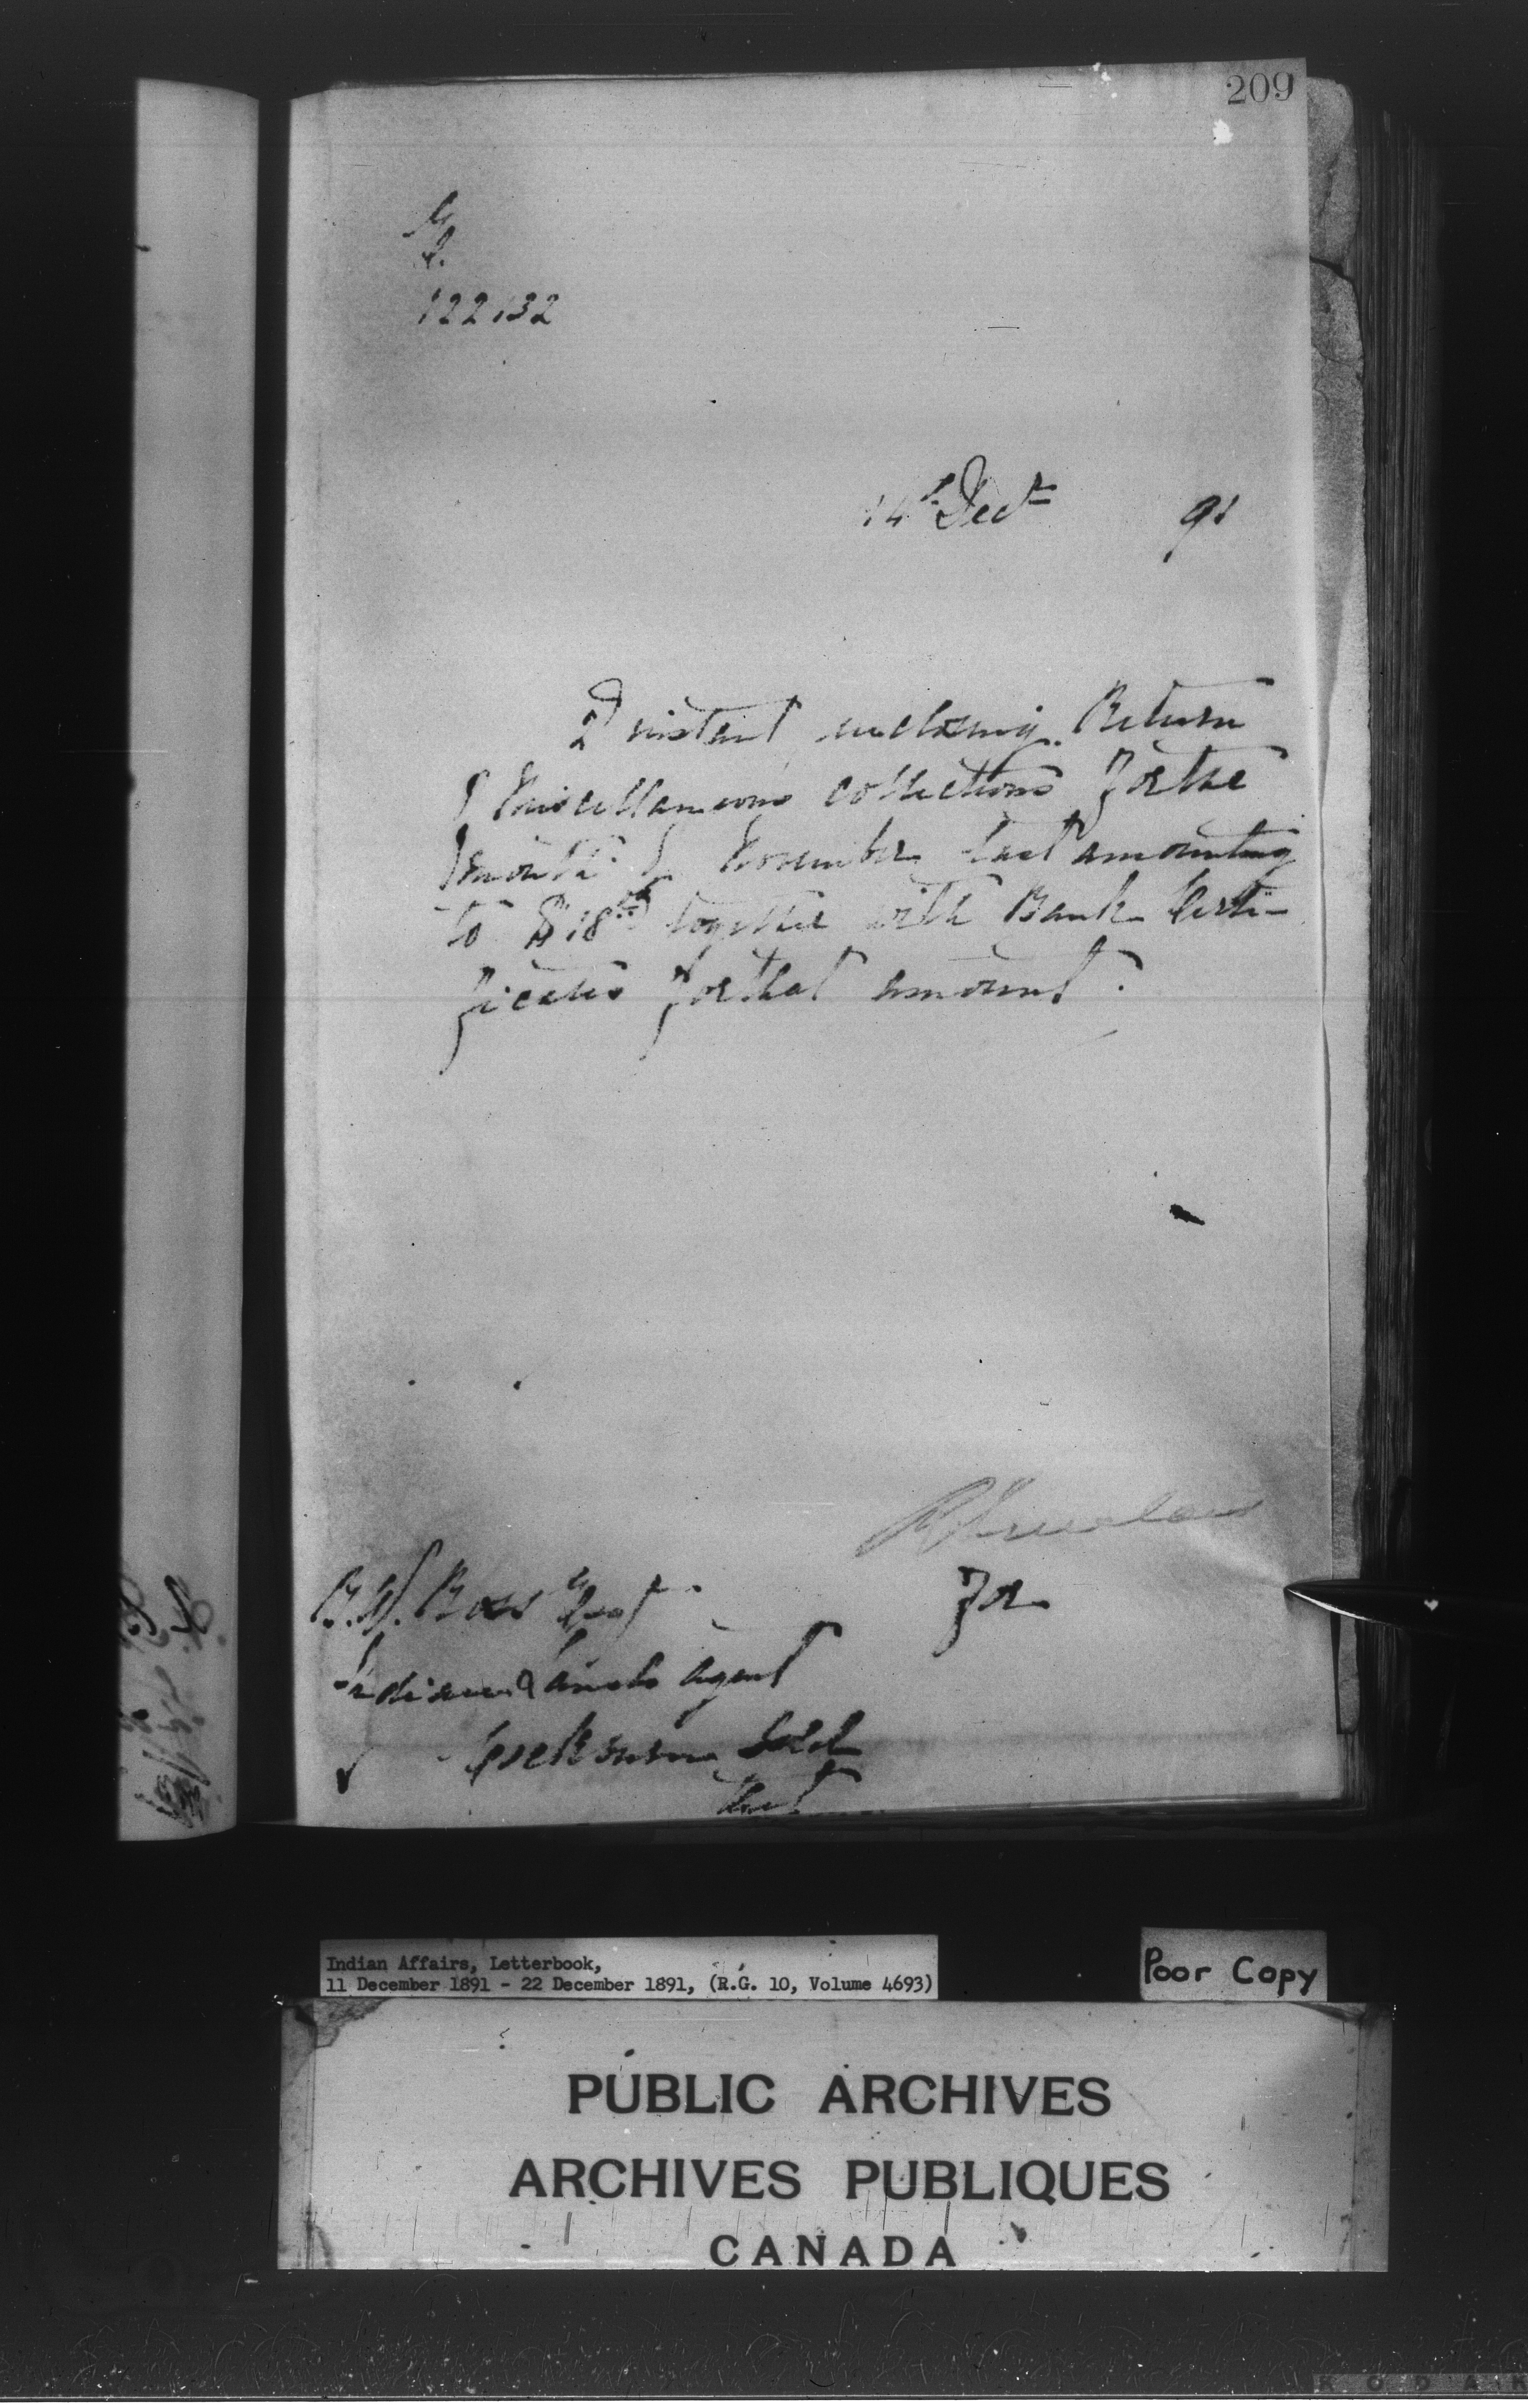 209
122132
14th Decr 91
2d instant enclosing Return
of Miscellaneous collections for the
month of November last amounting
to $18 together with Bank Certi-
ficates for that amount.
B.W. Ross Esqr
For
Indian Lands Agent
Cockburn Isld
Ont
Indian Affairs, Letterbook,
11 December 1891 - 22 December 1891, (R.G. 10, Volume 4693)
Poor Copy
PUBLIC ARCHIVES
ARCHIVES PUBLIQUES
CANADA
KODAK